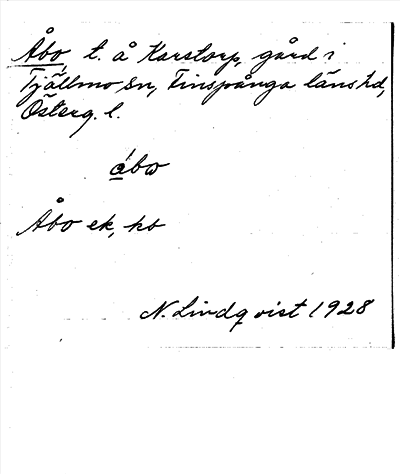 Åbo t. å Karstorp, gård i
Tjällmo sn, Finspånga läns hd,
Österg. l.
åbω
Åbo ek, ko
N. Lindqvist 1928